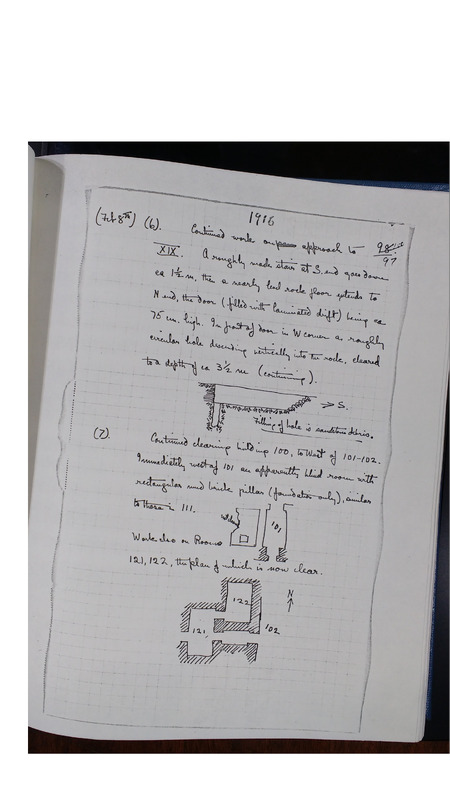 1916
98
97
(Feb 8th) (6). Continued work on approach to
XIX. A roughly made stair at S. end goes down
ca 1½ m, then a nearly level rock floor extends to
N end, the door (filled with laminated drift) being ca
75 cm. high. In front of door in W corner a roughly
circular hole descending vertically into the rock, cleared
to a depth of ca 3½ m (continuing).
S.
Filling of hole is sandstone debris.
(7) Continued clearing building 100, to West of 101-102.
Immediately west of 101 an apparently blind room with
rectangular mud brick pillar (foundation only), similar
to those in 111.
101
Work also on Rooms
121, 122, the plan of which is now clear.
N
122
121
102